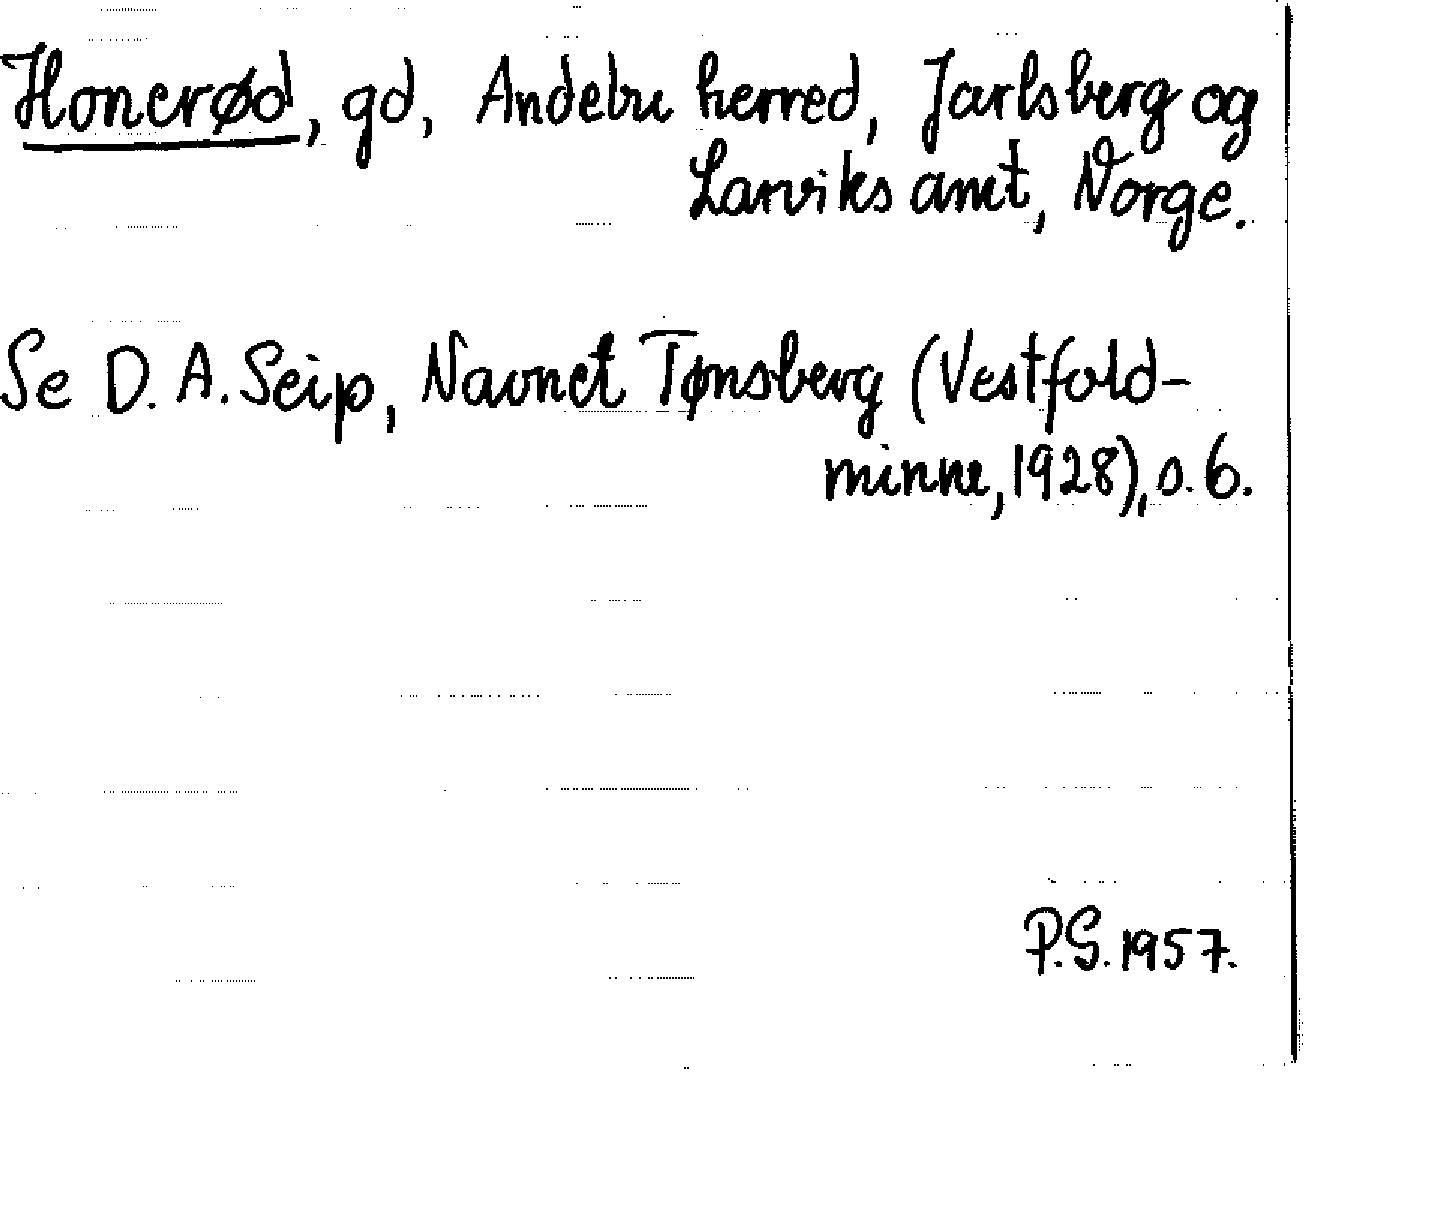 Honerød, gd, Andebu herred, Jarlsberg og
Larviks amt, Norge.
Se D. A. Seip, Navnet Tønsberg (Vestfold-
minne, 1928), s. 6.
P.S. 1957.